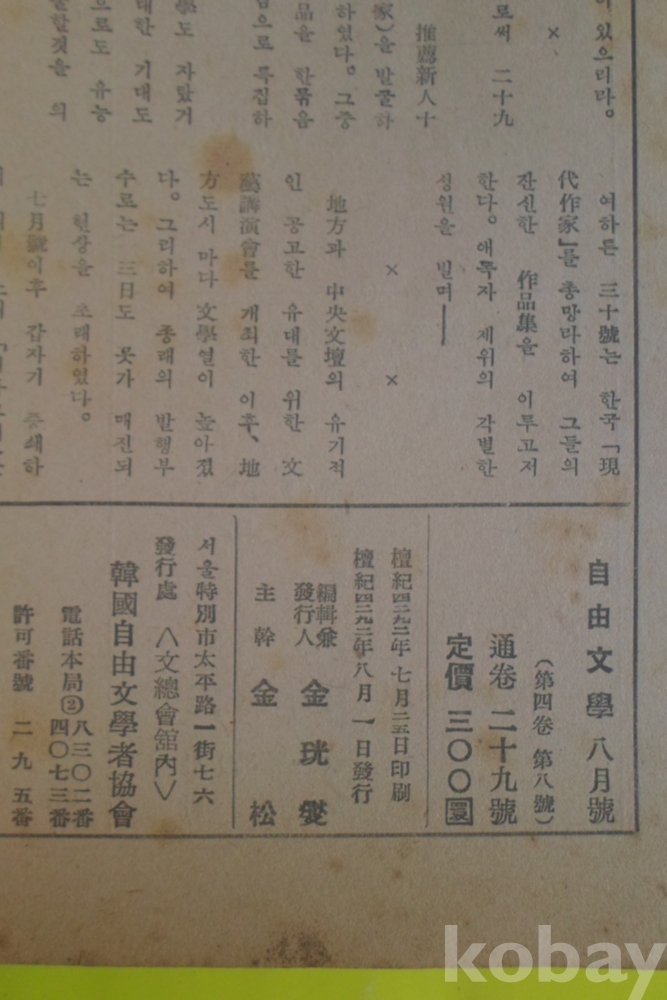 이 있으리라。
×
로써 二十九
推薦新人十
家)을 발굴하
하였다。 그중
품을 한묶음
으로 특집하
學도 자랐거
대한 기대도
으로도 유능
할것을 의
여하튼 三十號는 한국 「現
代作家」를 총망라하여 그들의
잔신한 作品集을 이루고저
한다。 애독자 제위의 각별한
성원을 빌며——
× ×
地方과 中央文壇의 유기적
인 공고한 유대를 위한 文
藝講演會를 개최한 이후、 地
方도시 마다 文學열이 높아졌
다。 그리하여 종래의 발행부
수로는 三日도 못가 매진되
는 현상을 초래하였다。
七月號이후 갑자기 증쇄하
自由文學 八月號
(第四卷 第八號)
通卷 二十九號
定價 三〇〇圜
檀紀四二九二年 七月二五日印刷
檀紀四二九二年八月一日發行
編輯兼
發行人 金珖燮
主幹 金松
서울特別市太平路一街七六
發行處 〈文總會舘內〉
韓國自由文學者協會
電話本局② 八三〇二番
四〇七三番
許可番號 二九五番
kobay